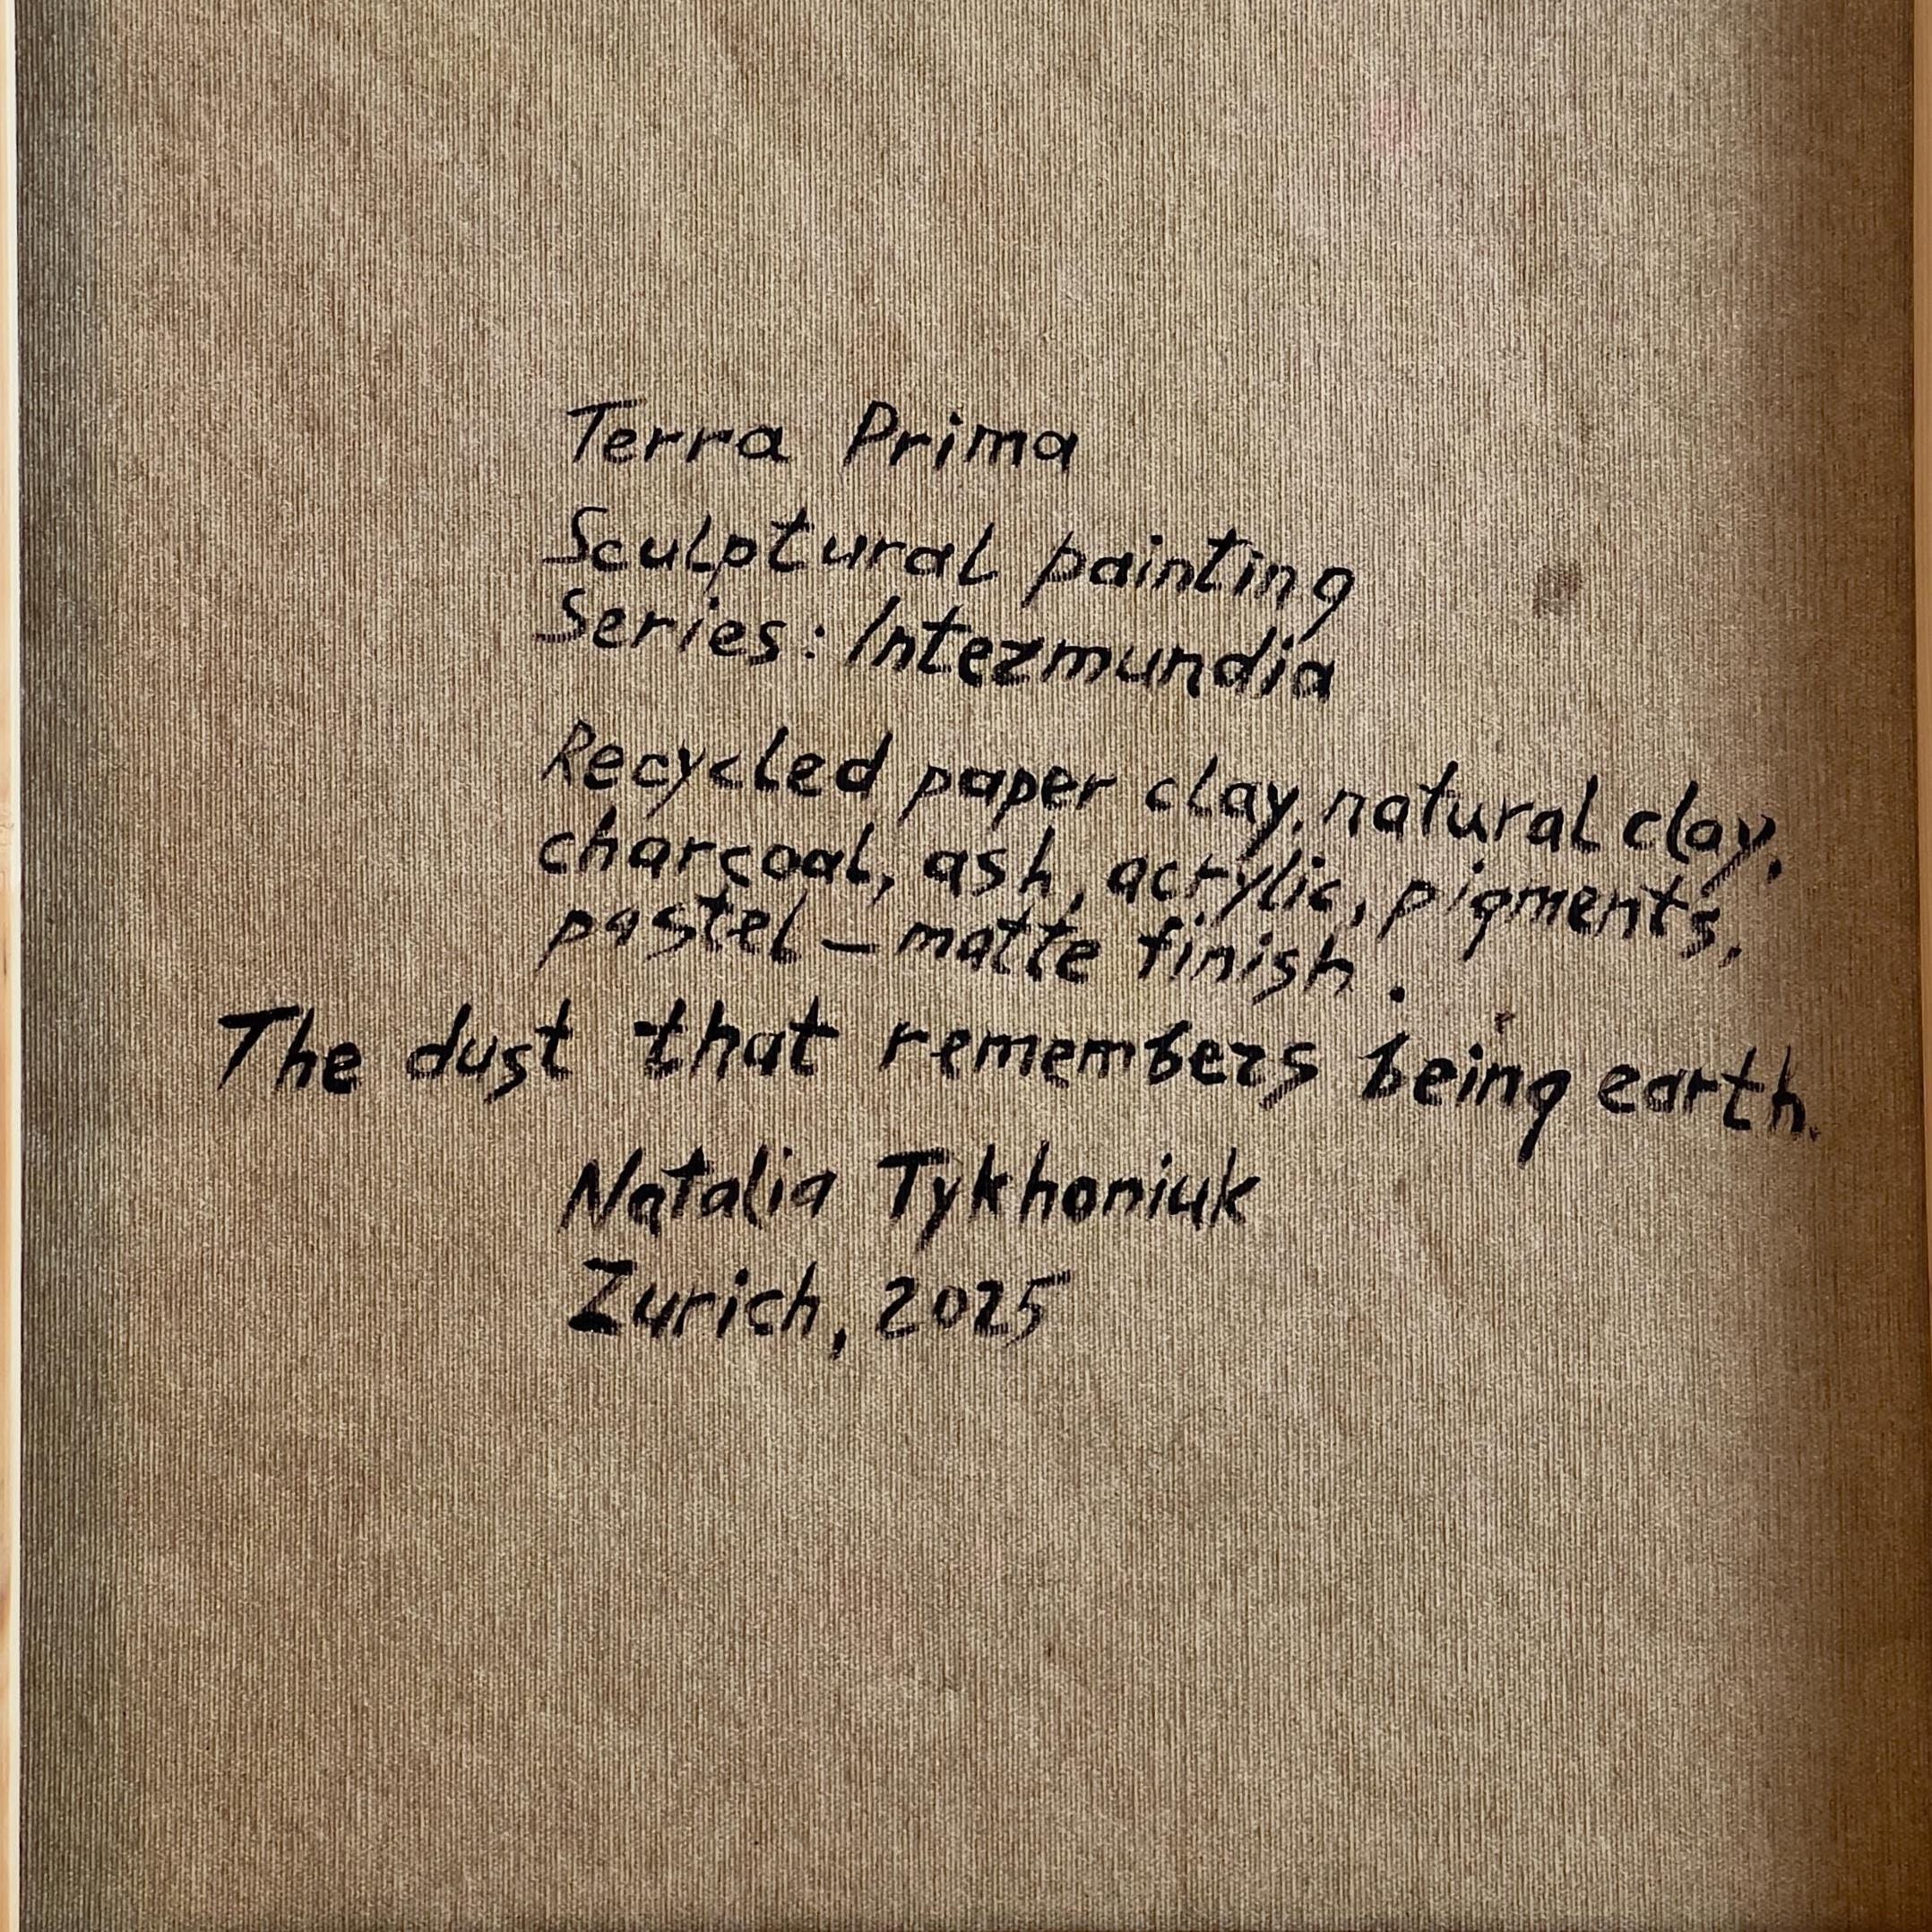 Terra Prima
Sculptural painting
Series: Intermundia
Recycled paper clay, natural clay,
charcoal, ash, acrylic, pigments,
pastel – matte finish.
The dust that remembers being earth.
Natalia Tykhoniuk
Zurich, 2025